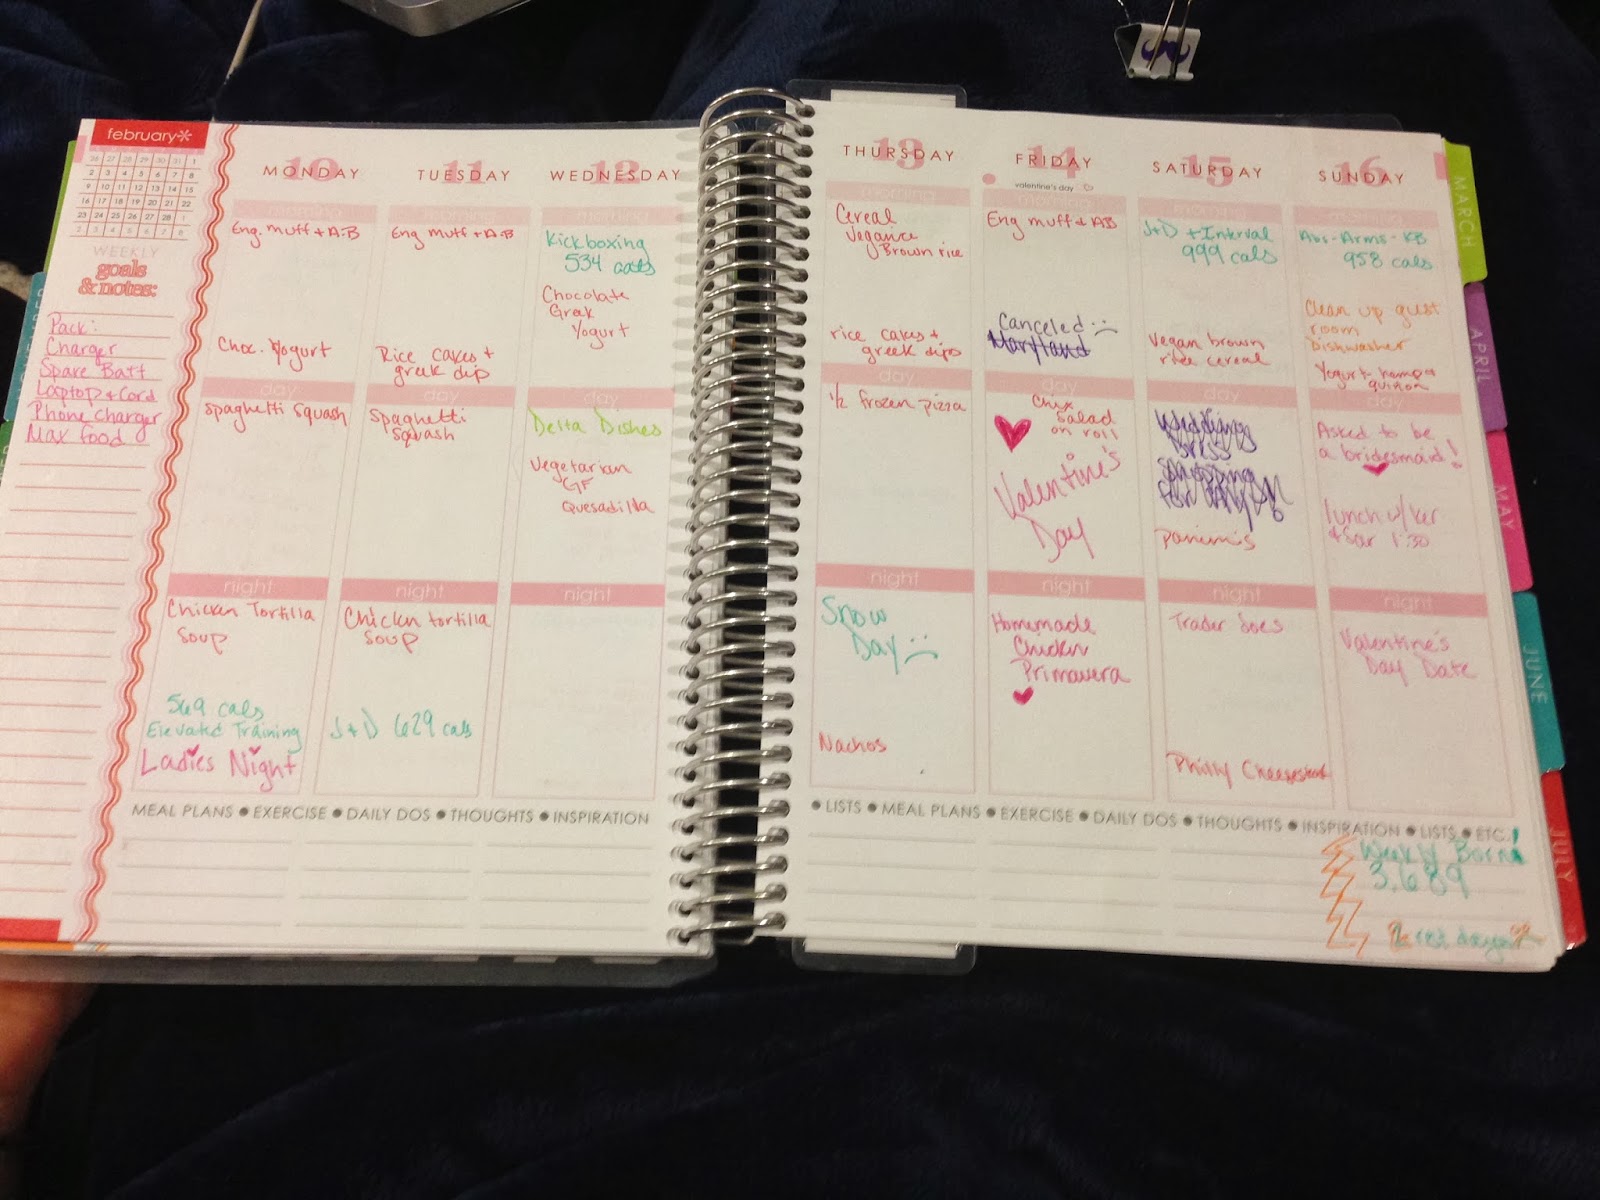 february*
26 27 28 29 30 31 1
2 3 4 5 6 7 8
9 10 11 12 13 14 15
16 17 18 19 20 21 22
23 24 25 26 27 28 1
2 3 4 5 6 7 8
WEEKLY
goals
& notes:
Pack:
Charger
Spare Batt
Laptop + Cord
Phone charger
Max food
10
MONDAY
morning
Eng. Muff + AB
Choc. Yogurt
day
Spaghetti Squash
night
Chicken Tortilla
Soup
569 cals
Elevated Training
Ladies Night
11
TUESDAY
morning
Eng Muff + AB
Rice cakes +
greek dip
day
Spaghetti
Squash
night
Chicken tortilla
soup
J+D 629 cals
12
WEDNESDAY
morning
Kickboxing
534 cals
Chocolate
Greek
Yogurt
day
Delta Dishes
Vegetarian
GF
Quesadilla
night
MEAL PLANS ● EXERCISE ● DAILY DOS ● THOUGHTS ● INSPIRATION
13
THURSDAY
morning
Cereal
Brown rice
rice cakes +
greek dips
day
1/2 frozen pizza
night
Snow
Day :(
Nachos
14
FRIDAY
valentine's day
morning
Eng muff + AB
Canceled :(
Maryland
day
Chix
Salad
on roll
Valentine's
Day
night
Homemade
Chicken
Primavera
15
SATURDAY
morning
J+D + Interval
999 cals
Vegan brown
rice cereal
day
Wedding
Dress
Shopping
for
paninis
night
Trader Joes
Philly Cheesesteak
16
SUNDAY
morning
Abs-Arms-KB
958 cals
Clean up guest
room
Dishwasher
Yogurt hemp +
day
Asked to be
a bridesmaid!
lunch w/ Ker
+ Sar 1:30
night
Valentine's
Day Date
● LISTS ● MEAL PLANS ● EXERCISE ● DAILY DOS ● THOUGHTS ● INSPIRATION ● LISTS ● ETC.
Weekly Burn
3,689
2 rest days
MARCH
APRIL
MAY
JUNE
JULY